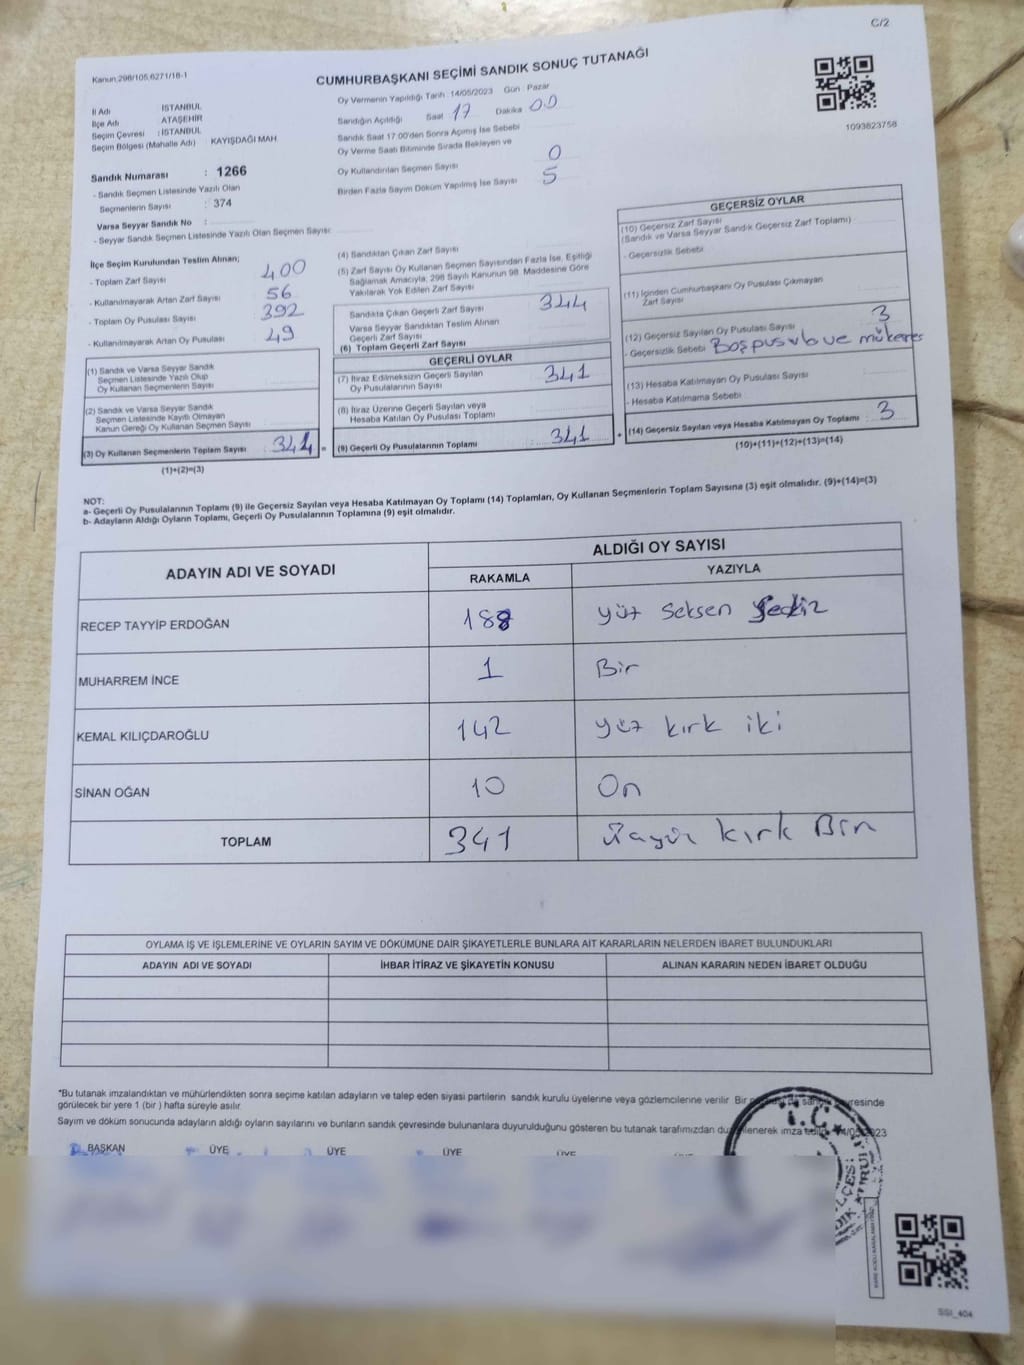 C/2
Kanun:298/105,6271/18-1
CUMHURBAŞKANI SEÇİMİ SANDIK SONUÇ TUTANAĞI
1093623758
İl Adı : İSTANBUL
İlçe Adı : ATAŞEHİR
Seçim Çevresi : İSTANBUL
Seçim Bölgesi (Mahalle Adı) : KAYIŞDAĞI MAH
Sandık Numarası : 1266
- Sandık Seçmen Listesinde Yazılı Olan
Seçmenlerin Sayısı : 374
Varsa Seyyar Sandık No :
- Seyyar Sandık Seçmen Listesinde Yazılı Olan Seçmen Sayısı:
Oy Vermenin Yapıldığı Tarih :14/05/2023 Gün : Pazar
Sandığın Açıldığı Saat 17 Dakika 00
Sandık Saat 17:00'den Sonra Açılmış İse Sebebi
Oy Verme Saati Bitiminde Sırada Bekleyen ve
Oy Kullandırılan Seçmen Sayısı 0
Birden Fazla Sayım Döküm Yapılmış İse Sayısı 5
İlçe Seçim Kurulundan Teslim Alınan;
- Toplam Zarf Sayısı 400
- Kullanılmayarak Artan Zarf Sayısı 56
- Toplam Oy Pusulası Sayısı 392
- Kullanılmayarak Artan Oy Pusulası 49
(1) Sandık ve Varsa Seyyar Sandık
Seçmen Listesinde Yazılı Olup
Oy Kullanan Seçmenlerin Sayısı
(2) Sandık ve Varsa Seyyar Sandık
Seçmen Listesinde Kayıtlı Olmayan
Kanun Gereği Oy Kullanan Seçmen Sayısı
(3) Oy Kullanan Seçmenlerin Toplam Sayısı :
(1)+(2)=(3)
(4) Sandıktan Çıkan Zarf Sayısı
(5) Zarf Sayısı Oy Kullanan Seçmen Sayısından Fazla İse, Eşitliği
Sağlamak Amacıyla; 298 Sayılı Kanunun 98. Maddesine Göre
Yakılarak Yok Edilen Zarf Sayısı
Sandıkta Çıkan Geçerli Zarf Sayısı 344
Varsa Seyyar Sandıktan Teslim Alınan
Geçerli Zarf Sayısı
(6) Toplam Geçerli Zarf Sayısı
GEÇERLİ OYLAR
(7) İtiraz Edilmeksizin Geçerli Sayılan
Oy Pusulalarının Sayısı 341
(8) İtiraz Üzerine Geçerli Sayılan veya
Hesaba Katılan Oy Pusulası Toplamı
= (9) Geçerli Oy Pusulalarının Toplamı : 341
GEÇERSİZ OYLAR
(10) Geçersiz Zarf Sayısı
(Sandık ve Varsa Seyyar Sandık Geçersiz Zarf Toplamı)
- Geçersizlik Sebebi
(11) İçinden Cumhurbaşkanı Oy Pusulası Çıkmayan
Zarf Sayısı
(12) Geçersiz Sayılan Oy Pusulası Sayısı 3
- Geçersizlik Sebebi Boş pusula ve mükerrer
(13) Hesaba Katılmayan Oy Pusulası Sayısı
- Hesaba Katılmama Sebebi
+ (14) Geçersiz Sayılan veya Hesaba Katılmayan Oy Toplamı : 3
(10)+(11)+(12)+(13)=(14)
NOT:
a- Geçerli Oy Pusulalarının Toplamı (9) ile Geçersiz Sayılan veya Hesaba Katılmayan Oy Toplamı (14) Toplamları, Oy Kullanan Seçmenlerin Toplam Sayısına (3) eşit olmalıdır. (9)+(14)=(3)
b- Adayların Aldığı Oyların Toplamı, Geçerli Oy Pusulalarının Toplamına (9) eşit olmalıdır.
ADAYIN ADI VE SOYADI
ALDIĞI OY SAYISI
RAKAMLA YAZIYLA
RECEP TAYYİP ERDOĞAN 188 yüz seksen sekiz
MUHARREM İNCE 1 Bir
KEMAL KILIÇDAROĞLU 142 yüz kırk iki
SİNAN OĞAN 10 On
TOPLAM 341 Üçyüz kırk Bir
OYLAMA İŞ VE İŞLEMLERİNE VE OYLARIN SAYIM VE DÖKÜMÜNE DAİR ŞİKAYETLERLE BUNLARA AİT KARARLARIN NELERDEN İBARET BULUNDUKLARI
ADAYIN ADI VE SOYADI İHBAR İTİRAZ VE ŞİKAYETİN KONUSU ALINAN KARARIN NEDEN İBARET OLDUĞU
*Bu tutanak imzalandıktan ve mühürlendikten sonra seçime katılan adayların ve talep eden siyasi partilerin sandık kurulu üyelerine veya gözlemcilerine verilir. Bir
görülecek bir yere 1 (bir ) hafta süreyle asılır.
Sayım ve döküm sonucunda adayların aldığı oyların sayılarını ve bunların sandık çevresinde bulunanlara duyurulduğunu gösteren bu tutanak tarafımızdan imza
BAŞKAN ÜYE ÜYE ÜYE ÜYE
T.C.
SSI_404